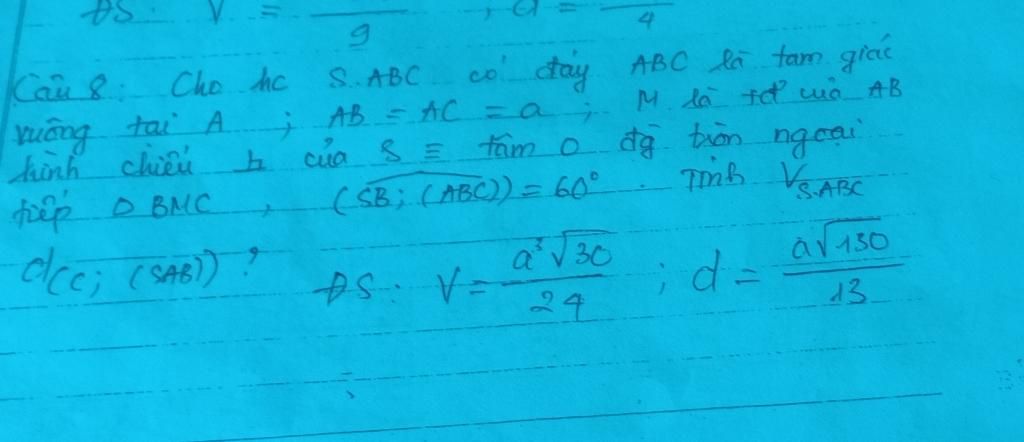 ĐS: V = /9 ; d = /4
Câu 8: Cho hc S.ABC có đáy ABC là tam giác
vuông tại A ; AB = AC = a ; M là tđ của AB
hình chiếu của S ≡ tâm O đg tròn ngoại
tiếp Δ BMC , (SB; (ABC)) = 60° . Tính V_{S.ABC}
d(C; (SAB)) ? ĐS: V = a³√30/24 ; d = a√130/13